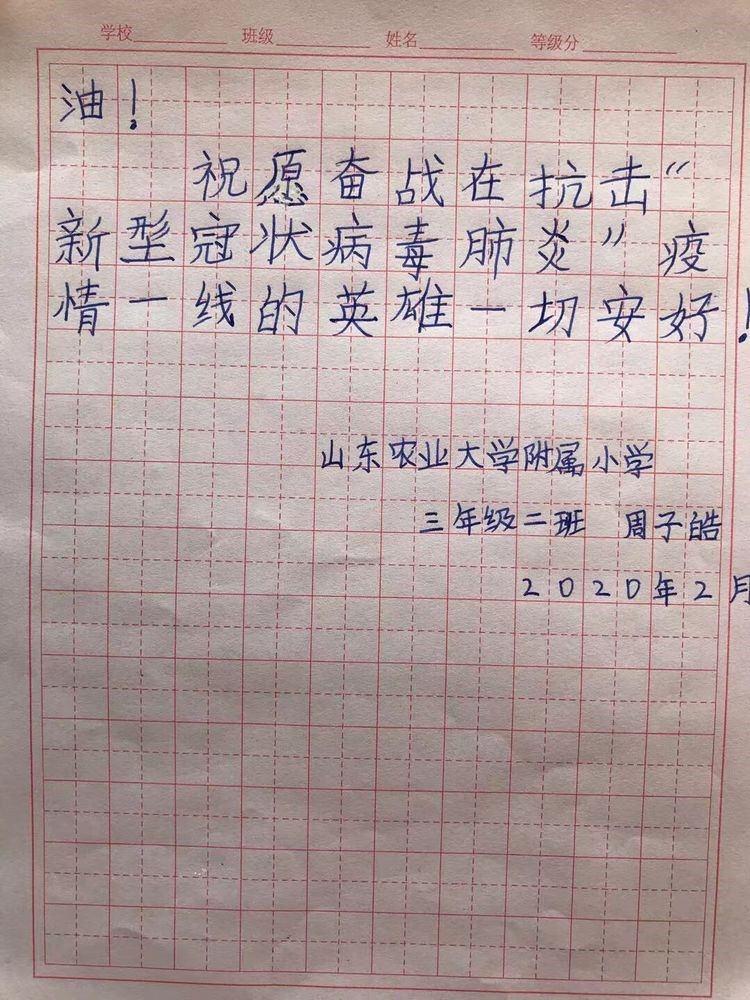 学校 班级 姓名 等级分
油！
祝愿奋战在抗击“
新型冠状病毒肺炎”疫
情一线的英雄一切安好！
山东农业大学附属小学
三年级二班 周子皓
2020年2月